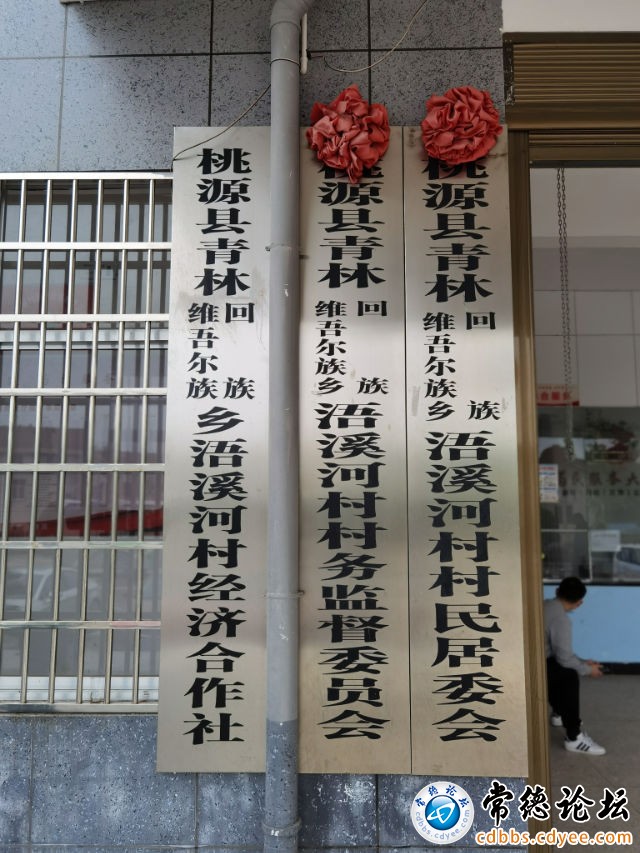 桃源县青林回族维吾尔族乡浯溪河村经济合作社
桃源县青林回族维吾尔族乡浯溪河村村务监督委员会
桃源县青林回族维吾尔族乡浯溪河村村民居委会
民服务大
常德论坛
常德论坛
cdbbs.cdyee.com